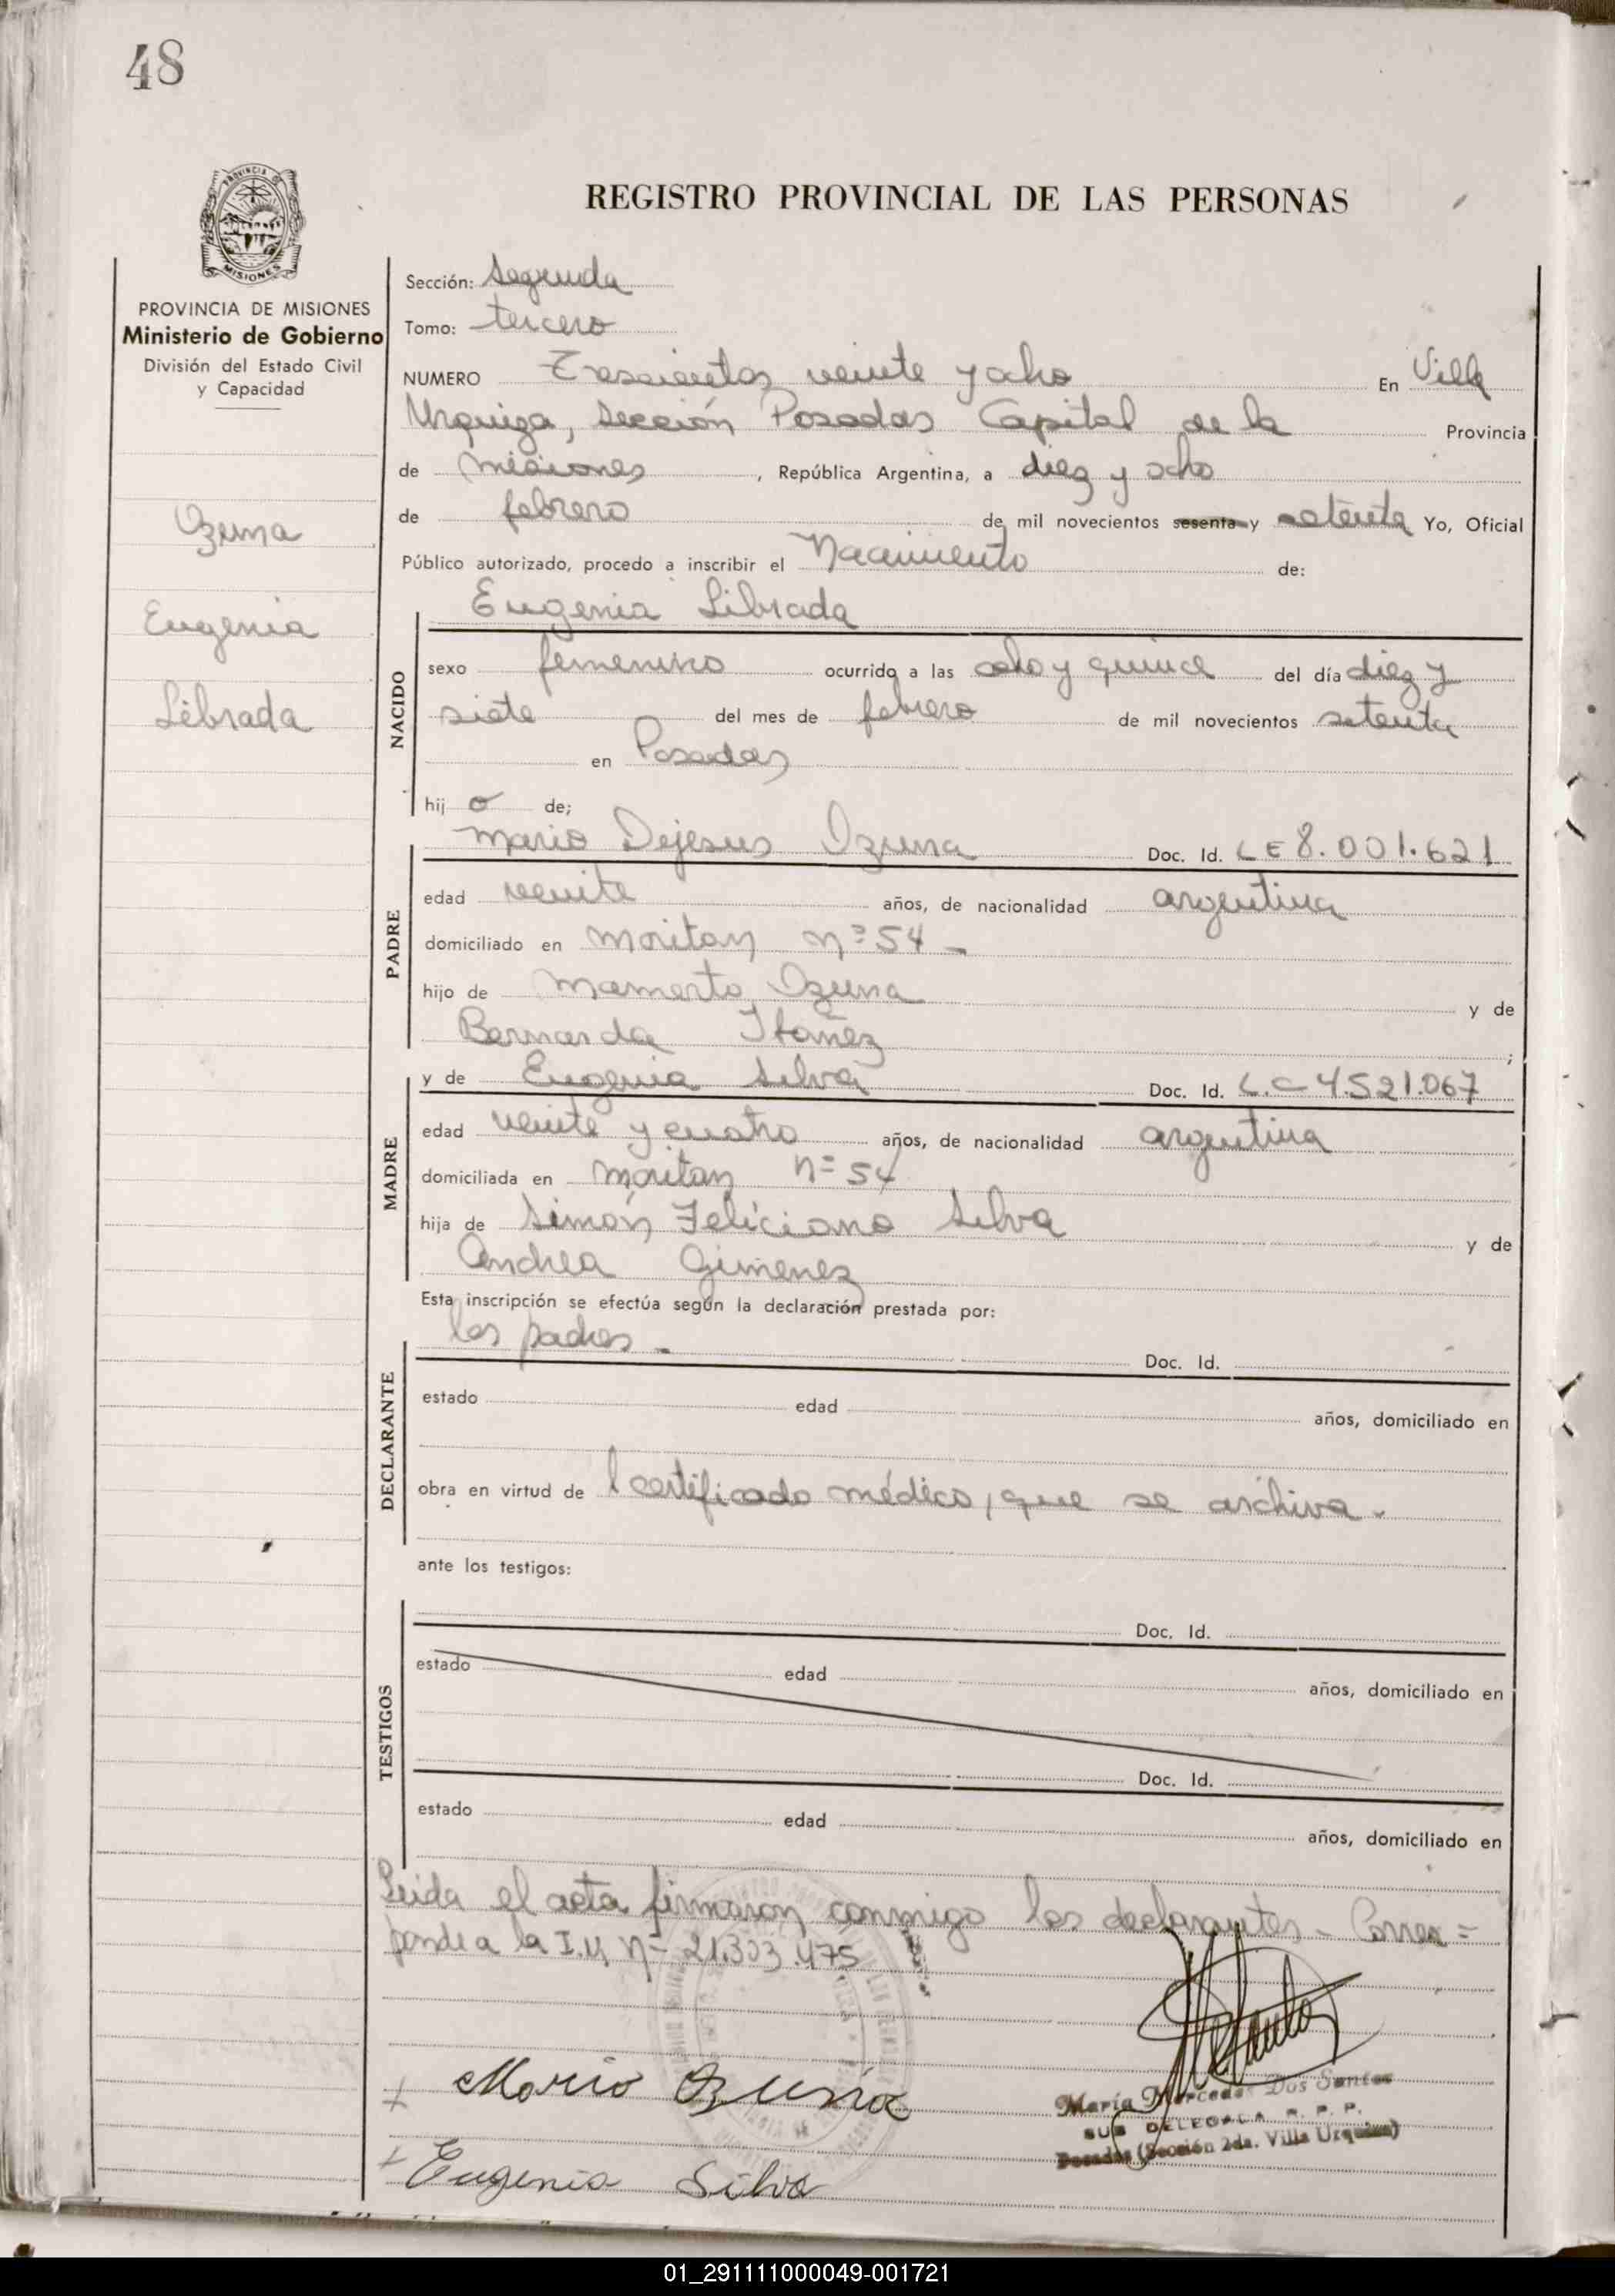 48
PROVINCIA DE MISIONES
Ministerio de Gobierno
División del Estado Civil
y Capacidad
Ozuna
Eugenia
Librada
REGISTRO PROVINCIAL DE LAS PERSONAS
Sección: Segunda
Tomo: tercero
NUMERO Trescientos veinte y ocho En Villa
Urquiza, Sección Posadas Capital de la Provincia
de Misiones, República Argentina, a diez y ocho
de febrero de mil novecientos sesenta y setenta Yo, Oficial
Público autorizado, procedo a inscribir el Nacimiento de:
Eugenia Librada
NACIDO
sexo femenino ocurrido a las ocho y quince del día diez y
siete del mes de febrero de mil novecientos setenta
en Posadas
hij o de;
Mario Dejesus Ozuna Doc. Id. LE 8.001.621
PADRE
edad veinte años, de nacionalidad argentina
domiciliado en moritan nº 54 -
hijo de Mamerto Ozuna y de
Bernarda Ibañez;
MADRE
y de Eugenia Silva Doc. Id. L.C 4.521.067
edad veinte y cuatro años, de nacionalidad argentina
domiciliada en moritan nº 54
hija de Simón Feliciano Silva y de
Andrea Gimenez
Esta inscripción se efectúa según la declaración prestada por:
los padres - Doc. Id.
DECLARANTE
estado edad años, domiciliado en
obra en virtud de l certificado médico, que se archiva.
ante los testigos:
TESTIGOS
Doc. Id.
estado edad años, domiciliado en
Doc. Id.
estado edad años, domiciliado en
Leida el acta firmaron conmigo los declarantes - Corres=
ponde a la I.M nº 21.303.475
Mario Ozuna
María Mercedes Dos Santos
SUB DELEGADA R. P. P.
Posadas (Sección 2da. Villa Urquiza)
Eugenia Silva
01_291111000049-001721